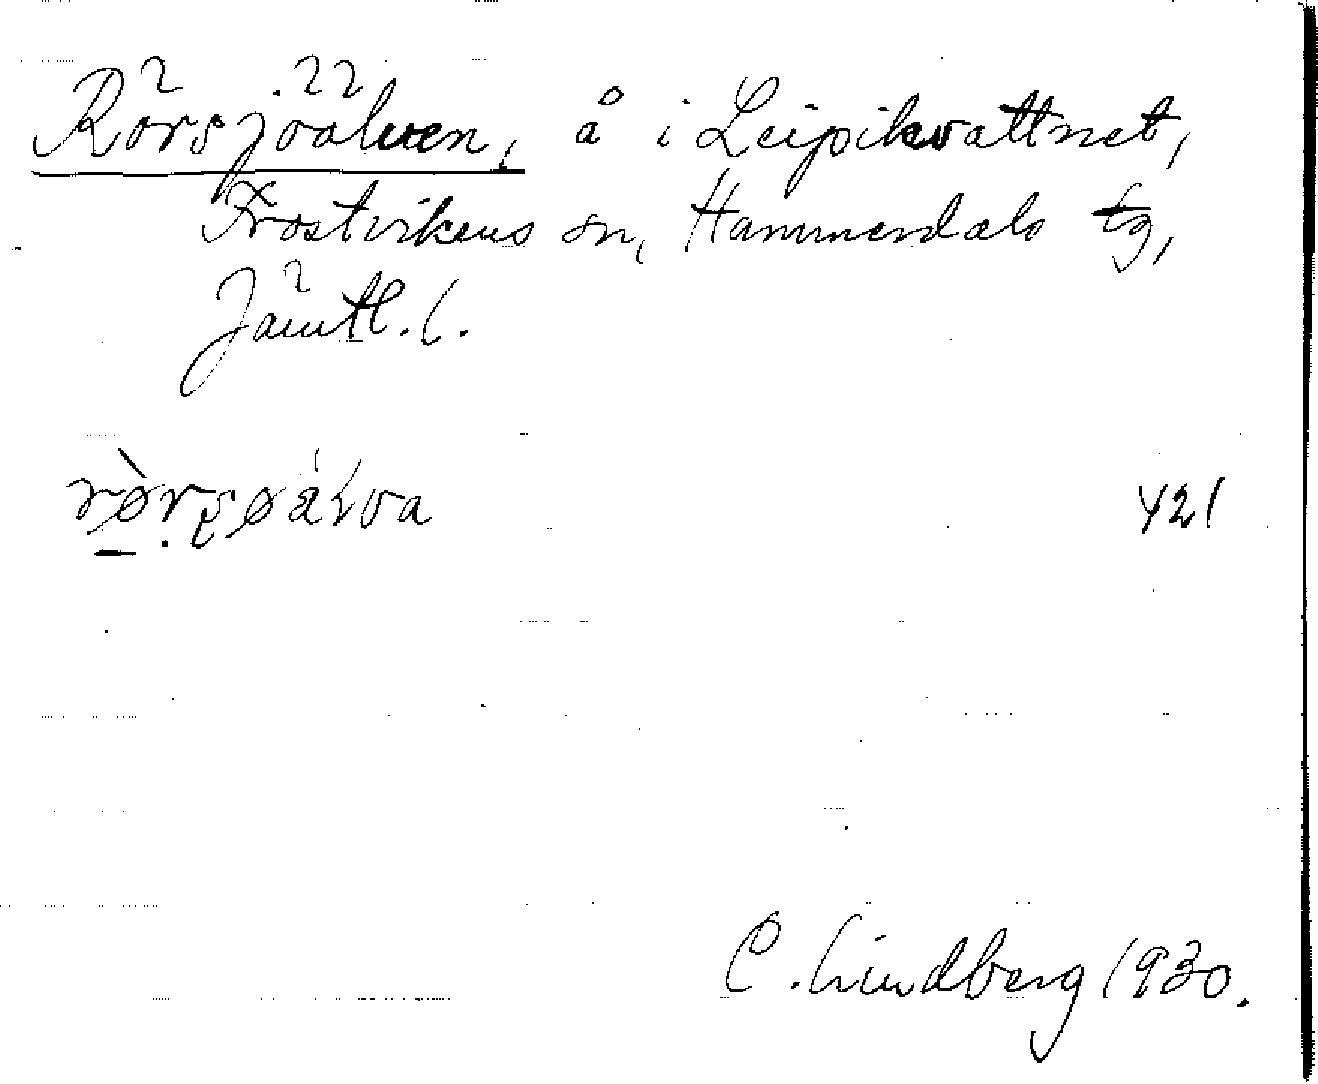 Rörsjöälven, å i Leipikvattnet,
Frostvikens sn, Hammerdals tg,
Jämtl. l.
421
C. Lindberg 1930.